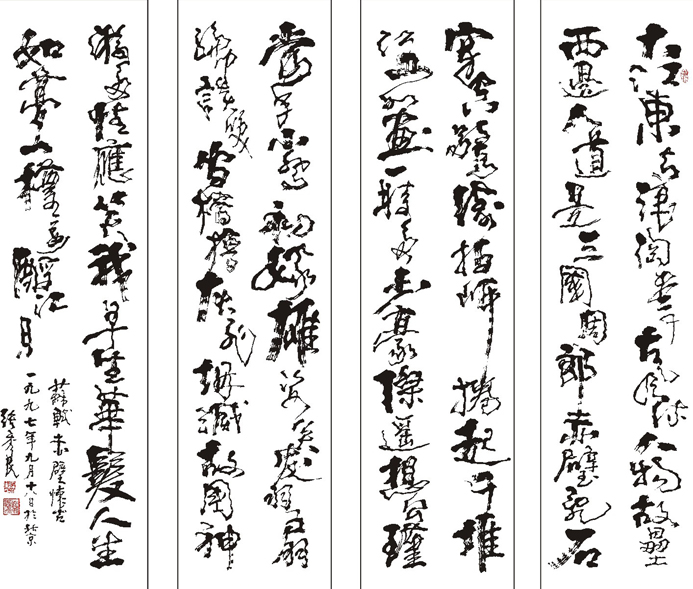 大江東去浪淘盡千古風流人物故壘
西邊人道是三國周郎赤壁亂石
穿空驚濤拍岸捲起千堆
江山如畫一時多少豪傑遥想公瑾
當年小喬初嫁雄姿英發羽扇
綸巾談笑間檣櫓灰飛煙滅故國神
遊多情應笑我早生華髮人生
如夢一樽還酹江月
蘇軾赤壁懷古
一九九七年九月十八日於北京